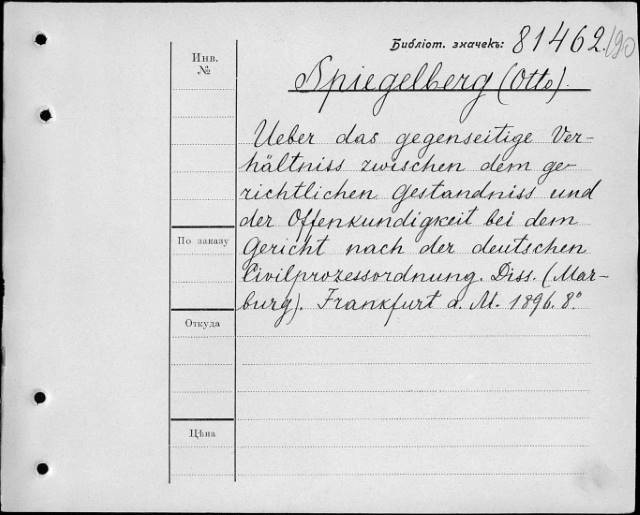 Библіот. значекъ: 81462./90
Инв.
№
Spiegelberg (Otto).
Ueber das gegenseitige Ver-
hältniss zwischen dem ge-
richtlichen Geständniss und
der Offenkundigkeit bei dem
Gericht nach der deutschen
Civilprozessordnung. Diss. (Mar-
burg). Frankfurt a. M. 1896. 8°.
По заказу
Откуда
Цѣна